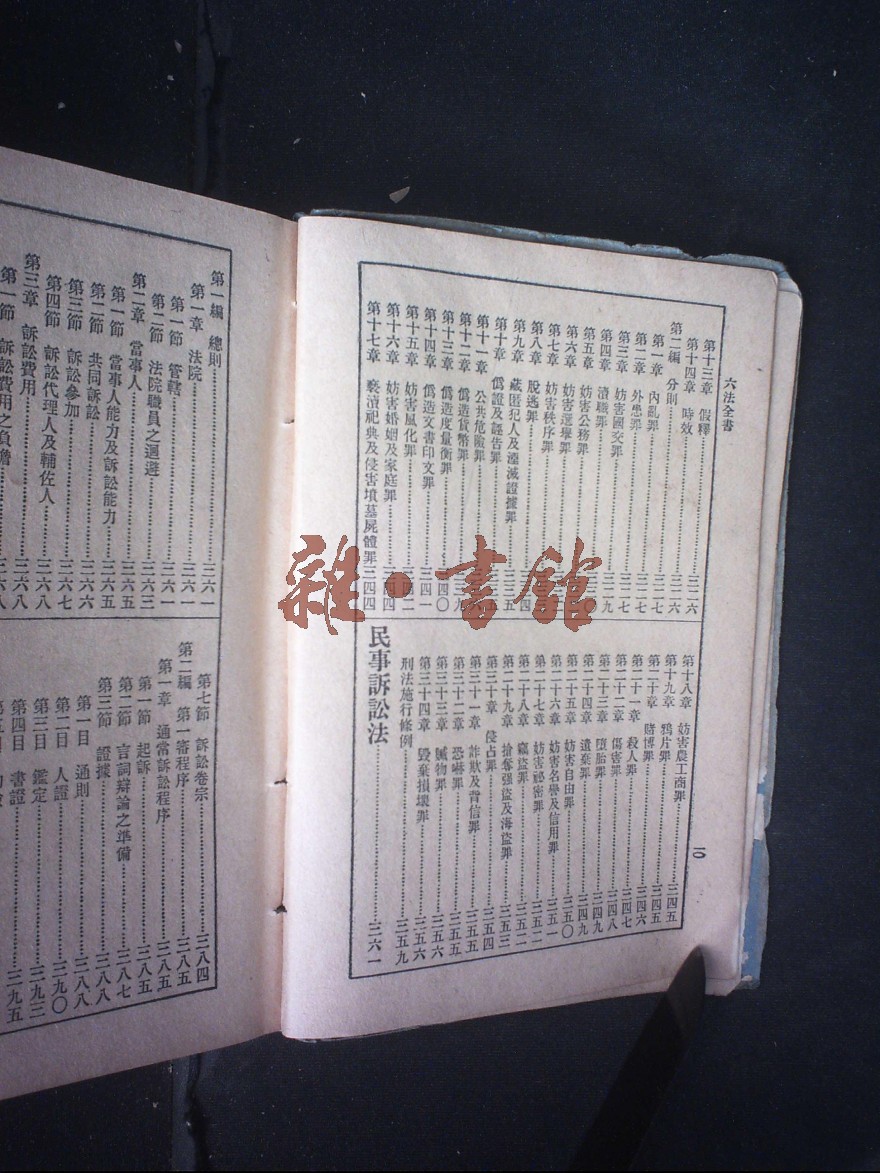 六法全書
第十三章 假釋…………三二六
第十四章 時效…………三二六
第二編 分則…………
第一章 內亂罪…………
第二章 外患罪…………
第三章 妨害國交罪…………
第四章 瀆職罪…………
第五章 妨害公務罪…………
第六章 妨害選舉罪…………
第七章 妨害秩序罪…………
第八章 脫逃罪…………
第九章 藏匿犯人及湮滅證據罪…………
第十章 僞證及誣告罪…………
第十一章 公共危險罪…………
第十二章 僞造貨幣罪…………
第十三章 僞造度量衡罪…………三四〇
第十四章 僞造文書印文罪…………三四一
第十五章 妨害風化罪…………
第十六章 妨害婚姻及家庭罪…………三四四
第十七章 褻瀆祀典及侵害墳墓屍體罪…三四四
第十八章 妨害農工商罪…………三四五
第十九章 鴉片罪…………三四五
第二十章 賭博罪…………三四六
第二十一章 殺人罪…………三四七
第二十二章 傷害罪…………三四八
第二十三章 墮胎罪…………三四九
第二十四章 遺棄罪…………三四九
第二十五章 妨害自由罪…………三五〇
第二十六章 妨害名譽及信用罪…………三五一
第二十七章 妨害祕密罪…………三五二
第二十八章 竊盜罪…………三五二
第二十九章 搶奪强盜及海盜罪…………三五三
第三十章 侵占罪…………三五四
第三十一章 詐欺及背信罪…………三五五
第三十二章 恐嚇罪…………三五五
第三十三章 贓物罪…………三五六
第三十四章 毀棄損壞罪…………三五六
刑法施行條例…………三五九
民事訴訟法…………三六一
一〇
第一編 總則…………三六一
第一章 法院…………三六一
第一節 管轄…………三六一
第二節 法院職員之迴避…………三六三
第二章 當事人…………三六五
第一節 當事人能力及訴訟能力…………三六五
第二節 共同訴訟…………三六六
第三節 訴訟參加…………三六七
第四節 訴訟代理人及輔佐人…………三六八
第三章 訴訟費用…………三六八
第一節 訴訟費用之負擔…………三六八
第七節 訴訟卷宗…………三八四
第二編 第一審程序…………三八五
第一章 通常訴訟程序…………三八五
第一節 起訴…………三八五
第二節 言詞辯論之準備…………三八七
第三節 證據…………三八八
第一目 通則…………三八八
第二目 人證…………三九〇
第三目 鑑定…………三九三
第四目 書證…………三九五
雜·書館